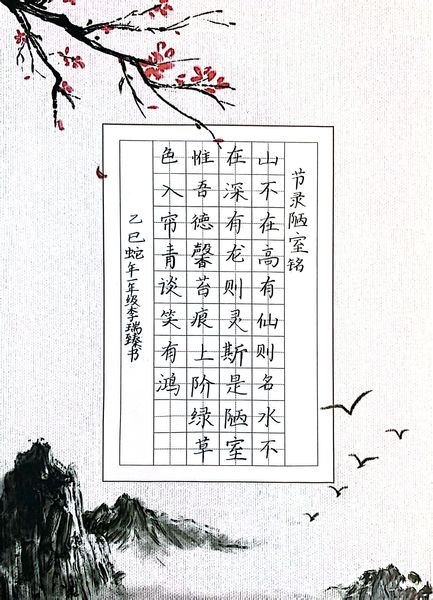 节录陋室铭
山不在高有仙则名水不
在深有龙则灵斯是陋室
惟吾德馨苔痕上阶绿草
色入帘青谈笑有鸿
乙巳蛇年一年级李瑞臻书